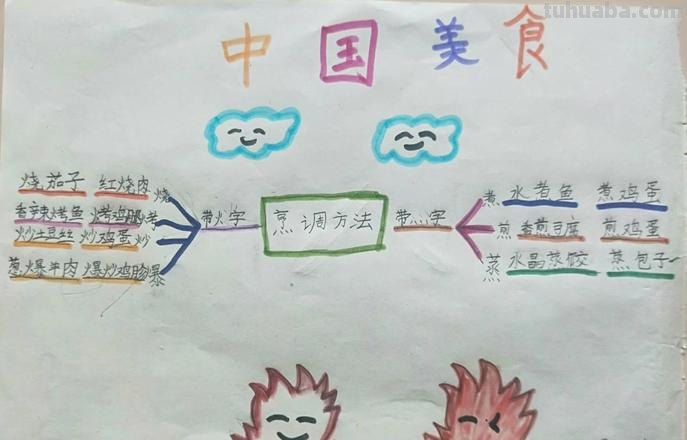 tuhuaba.com
中国美食
烧茄子 红烧肉 烧
香辣烤鱼 烤鸡腿 烤
炒土豆丝 炒鸡蛋 炒
葱爆羊肉 爆炒鸡胗 爆
带火字
烹调方法
带灬字
煮 水煮鱼 煮鸡蛋
煎 香煎豆腐 煎鸡蛋
蒸 水晶蒸饺 蒸包子